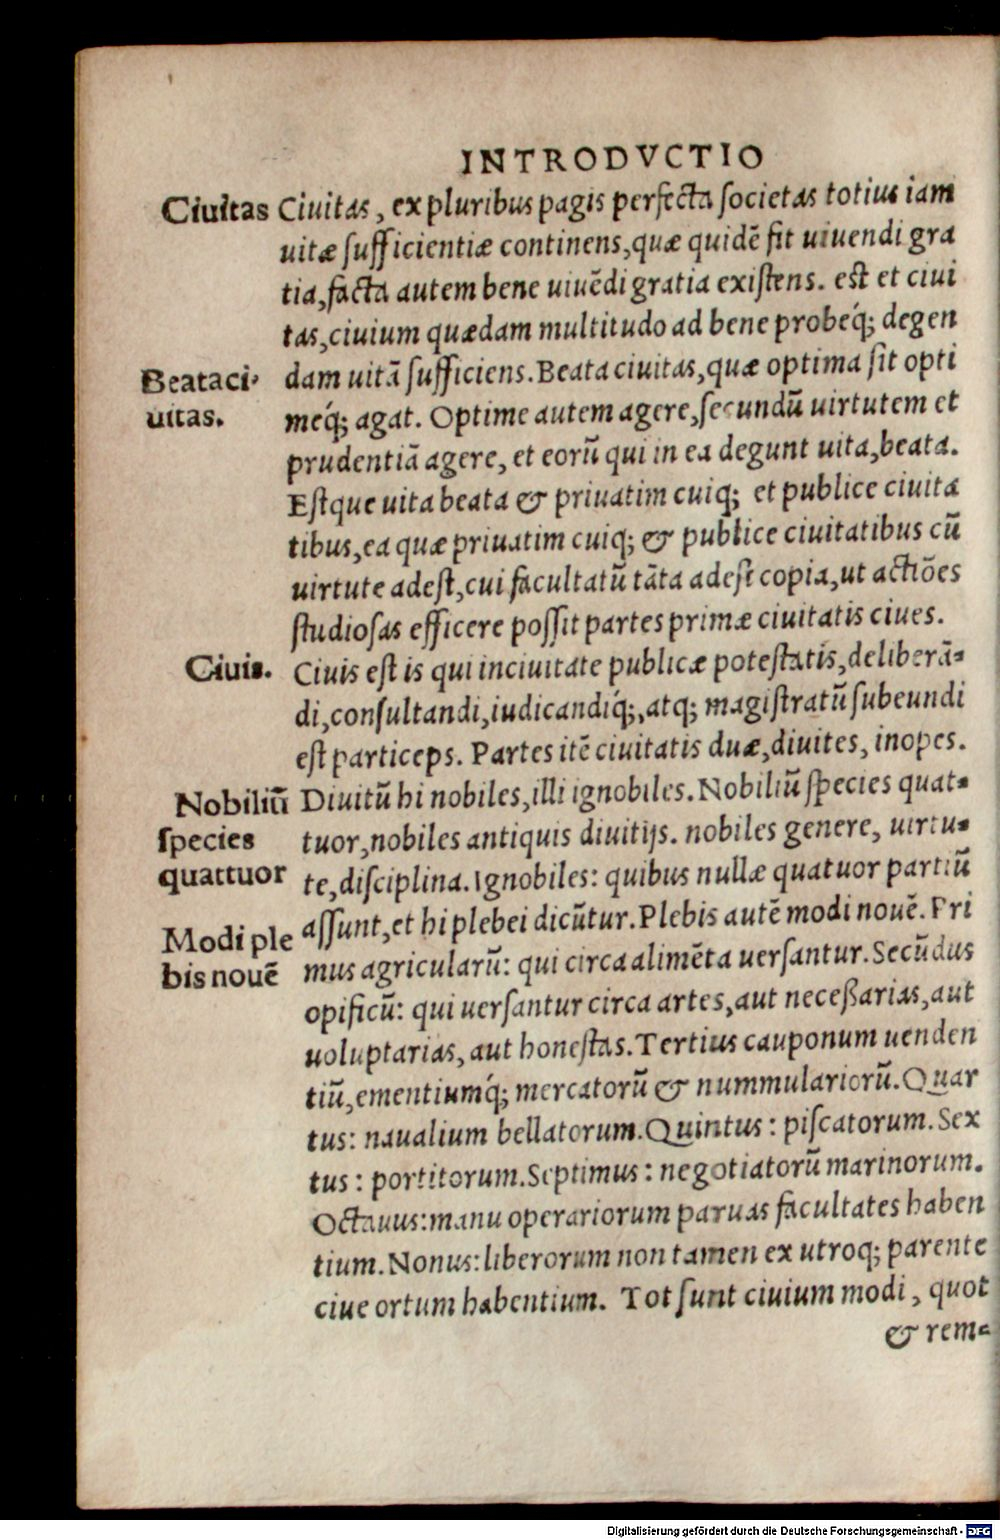 INTRODVCTIO
Ciuitas
Ciuitas, ex pluribus pagis perfecta ſocietas totius iam
uitæ ſufficientiæ continens,quæ quidē fit uiuendi gra
tia,facta autem bene uiuēdi gratia exiſtens. eſt et ciui
tas,ciuium quædam multitudo ad bene probeq́; degen
Beata ci-
uitas.
dam uitā ſufficiens.Beata ciuitas,quæ optima ſit opti
meq́; agat. Optime autem agere,ſecundū uirtutem et
prudentiā agere, et eorū qui in ea degunt uita,beata.
Eſtque uita beata & priuatim cuiq; et publice ciuita
tibus,ea quæ priuatim cuiq; & publice ciuitatibus cū
uirtute adeſt,cui facultatū tāta adeſt copia,ut actiōes
ſtudioſas efficere poſſit partes primæ ciuitatis ciues.
Ciuis.
Ciuis eſt is qui inciuitate publicæ poteſtatis,deliberā-
di,conſultandi,iudicandiq́;,atq; magiſtratū ſubeundi
eſt particeps. Partes itē ciuitatis duæ,diuites, inopes.
Nobiliū
ſpecies
quattuor
Diuitū hi nobiles,illi ignobiles.Nobiliū ſpecies quat-
tuor,nobiles antiquis diuitijs. nobiles genere, uirtu-
te,diſciplina.Ignobiles: quibus nullæ quatuor partiū
Modi ple
bis nouē
aſſunt,et hi plebei dicūtur.Plebis autē modi nouē.Pri
mus agricularū: qui circa alimēta uerſantur.Secūdus
opificū: qui uerſantur circa artes,aut neceßarias,aut
uoluptarias, aut honeſtas.Tertius cauponum uenden
tiū,ementiumq́; mercatorū & nummulariorū.Quar
tus: naualium bellatorum.Quintus: piſcatorum.Sex
tus: portitorum.Septimus: negotiatorū marinorum.
Octauus:manu operariorum paruas facultates haben
tium.Nonus:liberorum non tamen ex utroq; parente
ciue ortum habentium. Tot ſunt ciuium modi, quot
& rem-
Digitalisierung gefördert durch die Deutsche Forschungsgemeinschaft - DFG